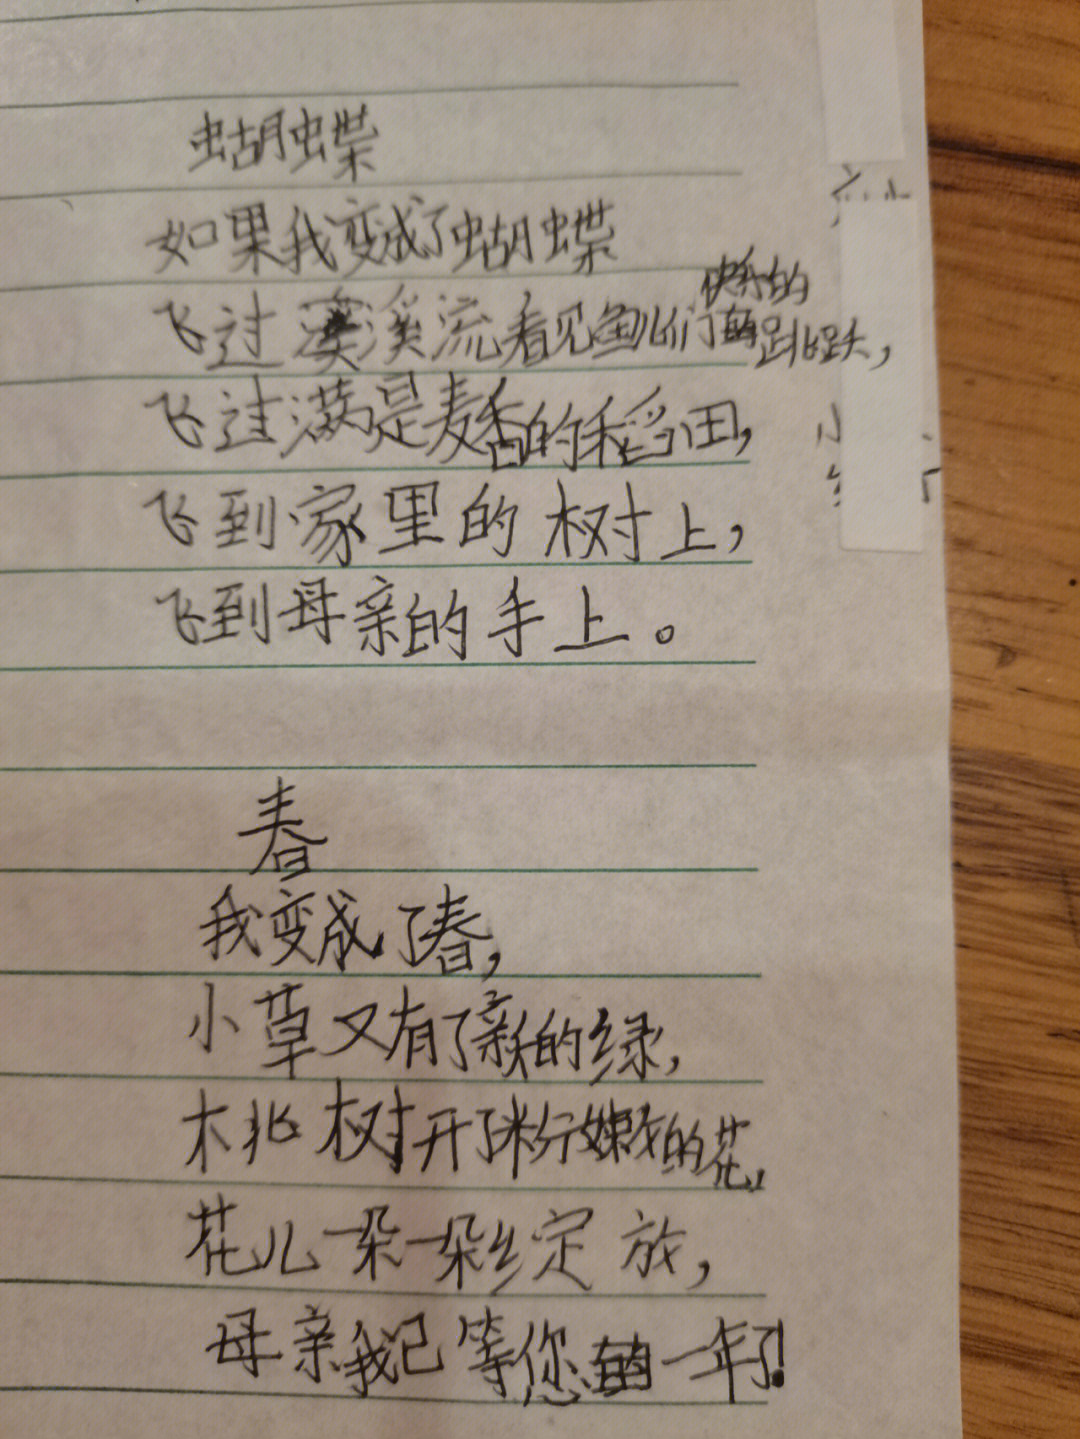 蝴蝶
如果我变成了蝴蝶
飞过溪流看见鱼儿们快乐的跳跃，
飞过满是麦香的稻田，
飞到家里的树上，
飞到母亲的手上。
春
我变成了春，
小草又有了新的绿，
桃树开了粉嫩的花，
花儿一朵一朵绽放，
母亲我已等您一年了！